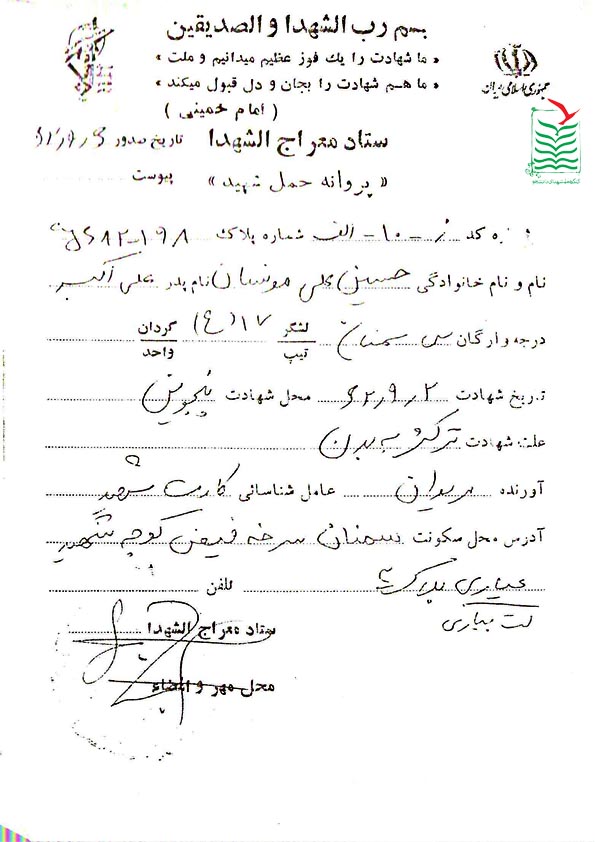 بسم رب الشهدا و الصدیقین
« ما شهادت را یك فوز عظیم میدانیم و ملت »
« ما هم شهادت را بجان و دل قبول میکند »
( امام خمینی )
جمهوری اسلامی ایران
ستاد معراج الشهدا
تاریخ صدور ۶۲/۹/۶
« پروانه حمل شهید »
پیوست
شماره کد ز-۱۰-الف شماره پلاك
نام و نام خانوادگی حسین علی نام پدر علی اکبر
درجه و ارگان سمنان لشگر ۱۷ (ع) گردان
تیپ واحد
تاریخ شهادت ۶۲/۹/۲ محل شهادت پنجوین
علت شهادت ترکش به بدن
آورنده مریوان عامل شناسائی کارت شهید
آدرس محل سکونت سمنان سرخه کوچه شهید
عیاری پلاک تلفن
ستاد معراج الشهدا
محل مهر و امضاء